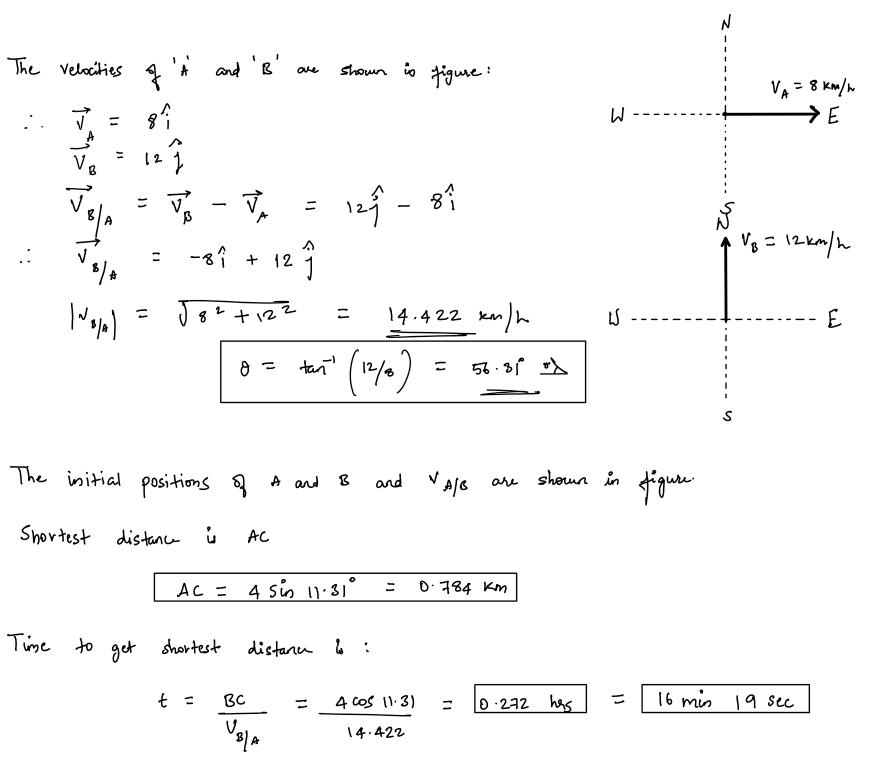 The velocities of 'A' and 'B' are shown in figure:
∴ V⃗_A = 8î
V⃗_B = 12ĵ
V⃗_B/A = V⃗_B − V⃗_A = 12ĵ − 8î
∴ V⃗_B/A = −8î + 12ĵ
|V_B/A| = √(8² + 12²) = 14.422 km/h
θ = tan⁻¹(12/8) = 56.31°
N
W
V_A = 8 km/h
E
S
N
V_B = 12 km/h
W
E
S
The initial positions of A and B and V_A/B are shown in figure.
Shortest distance is AC
AC = 4 sin 11.31° = 0.784 km
Time to get shortest distance is :
t = BC / V_B/A = 4 cos 11.31 / 14.422 = 0.272 hrs = 16 min 19 sec